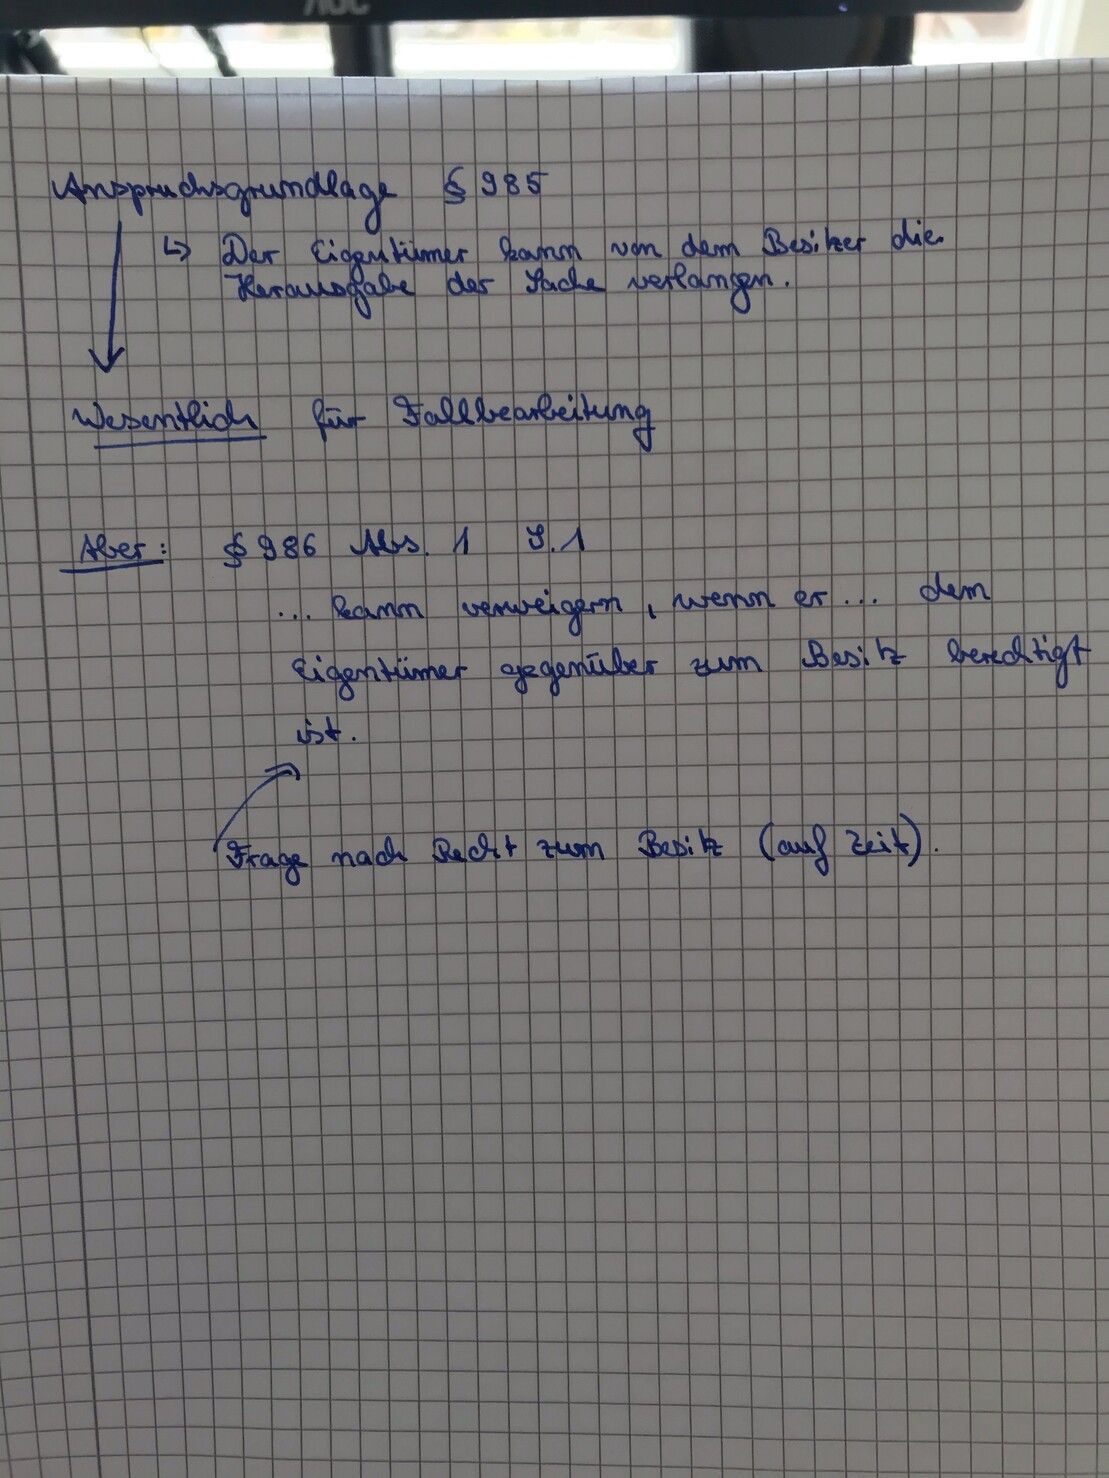 AOC
Anspruchsgrundlage § 985
↳ Der Eigentümer kann von dem Besitzer die
Herausgabe der Sache verlangen.
Wesentlich für Fallbearbeitung
Aber: § 986 Abs. 1 S. 1
... kann verweigern, wenn er ... dem
Eigentümer gegenüber zum Besitz berechtigt
ist.
Frage nach Recht zum Besitz (auf Zeit).